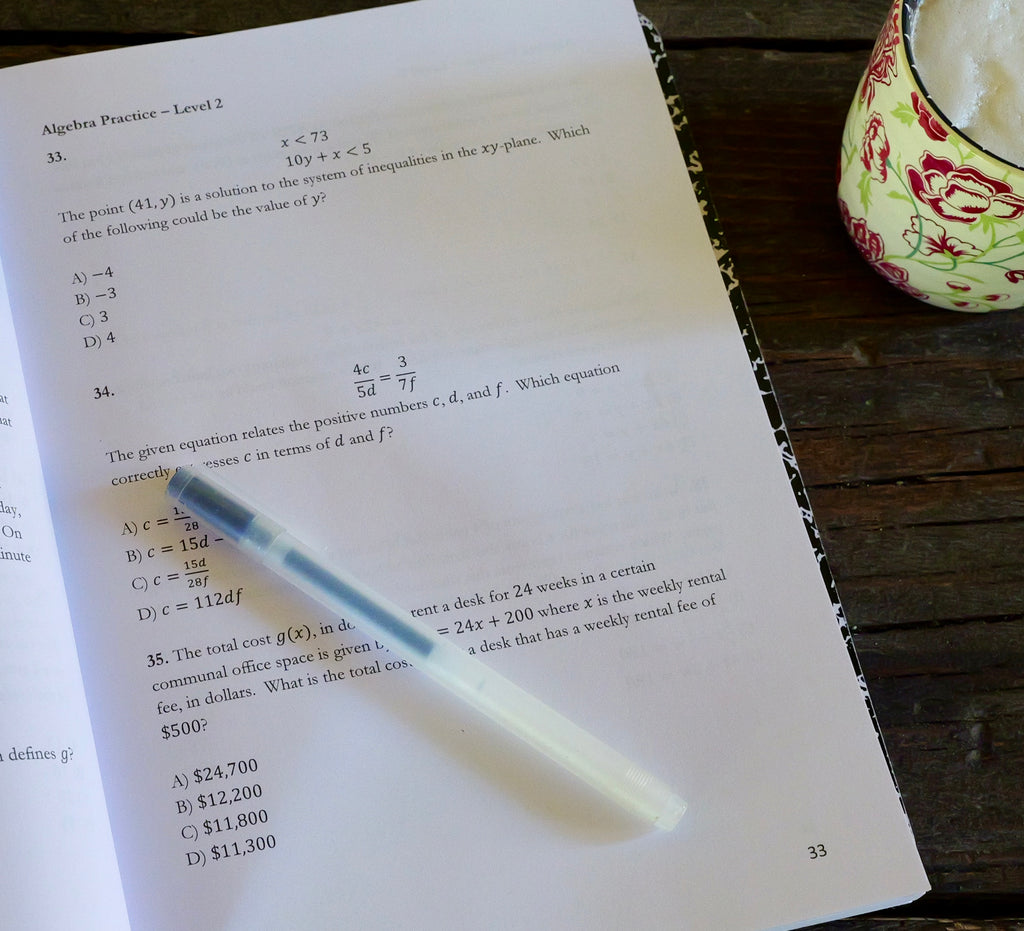 at
nat
day,
On
inute
n defines g?
Algebra Practice – Level 2
33.
x < 73
10y + x < 5
The point (41, y) is a solution to the system of inequalities in the xy-plane. Which
of the following could be the value of y?
A) −4
B) −3
C) 3
D) 4
34.
4c/5d = 3/7f
The given equation relates the positive numbers c, d, and f. Which equation
correctly esses c in terms of d and f?
A) c = 28
B) c = 15d −
C) c = 15d/28f
D) c = 112df
35. The total cost g(x), in do rent a desk for 24 weeks in a certain
communal office space is given = 24x + 200 where x is the weekly rental
fee, in dollars. What is the total cos a desk that has a weekly rental fee of
$500?
A) $24,700
B) $12,200
C) $11,800
D) $11,300
33